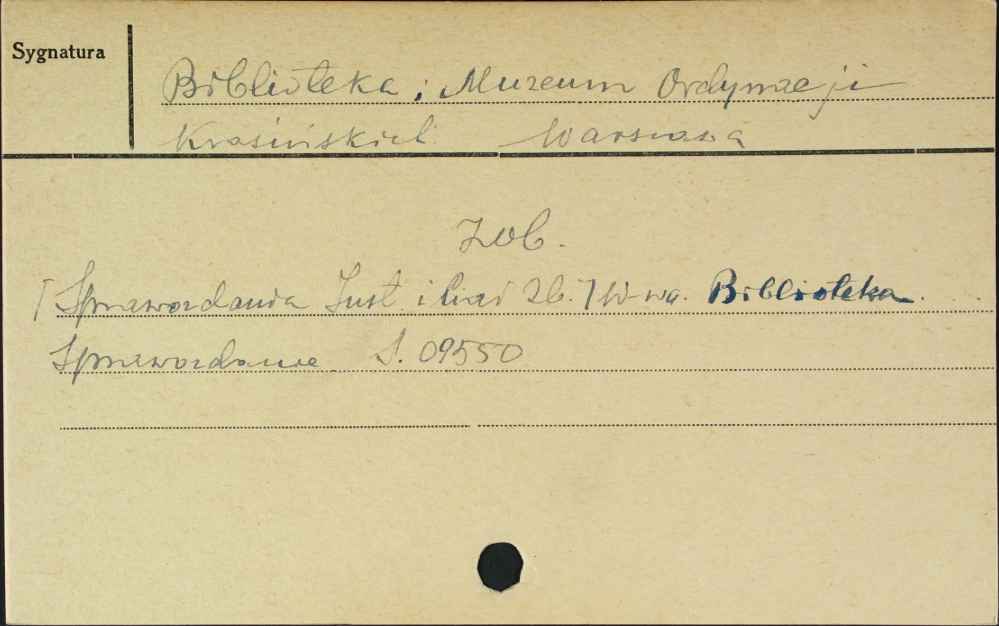 Sygnatura
Biblioteka i Muzeum Ordynacji
Krasińskich Warszawa
zob.
[Sprawozdania Inst. i Zb.] W-wa. Biblioteka
Sprawozdanie S. 09550